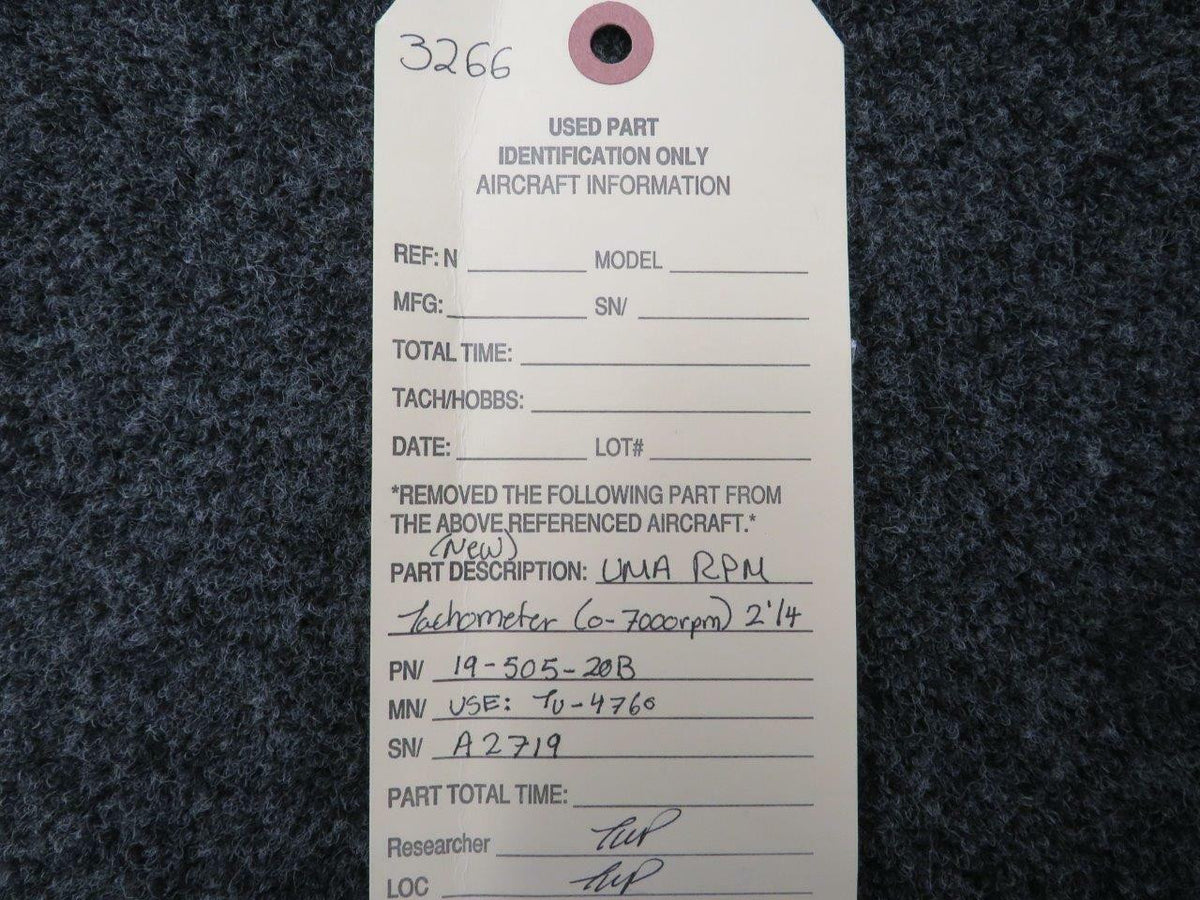 3266
USED PART
IDENTIFICATION ONLY
AIRCRAFT INFORMATION
REF: N MODEL
MFG: SN/
TOTAL TIME:
TACH/HOBBS:
DATE: LOT#
*REMOVED THE FOLLOWING PART FROM
THE ABOVE REFERENCED AIRCRAFT.*
(New)
PART DESCRIPTION: UMA RPM
Tachometer (0-7000rpm) 2'1/4
PN/ 19-505-20B
MN/ USE: TU-4760
SN/ A2719
PART TOTAL TIME:
Researcher
LOC